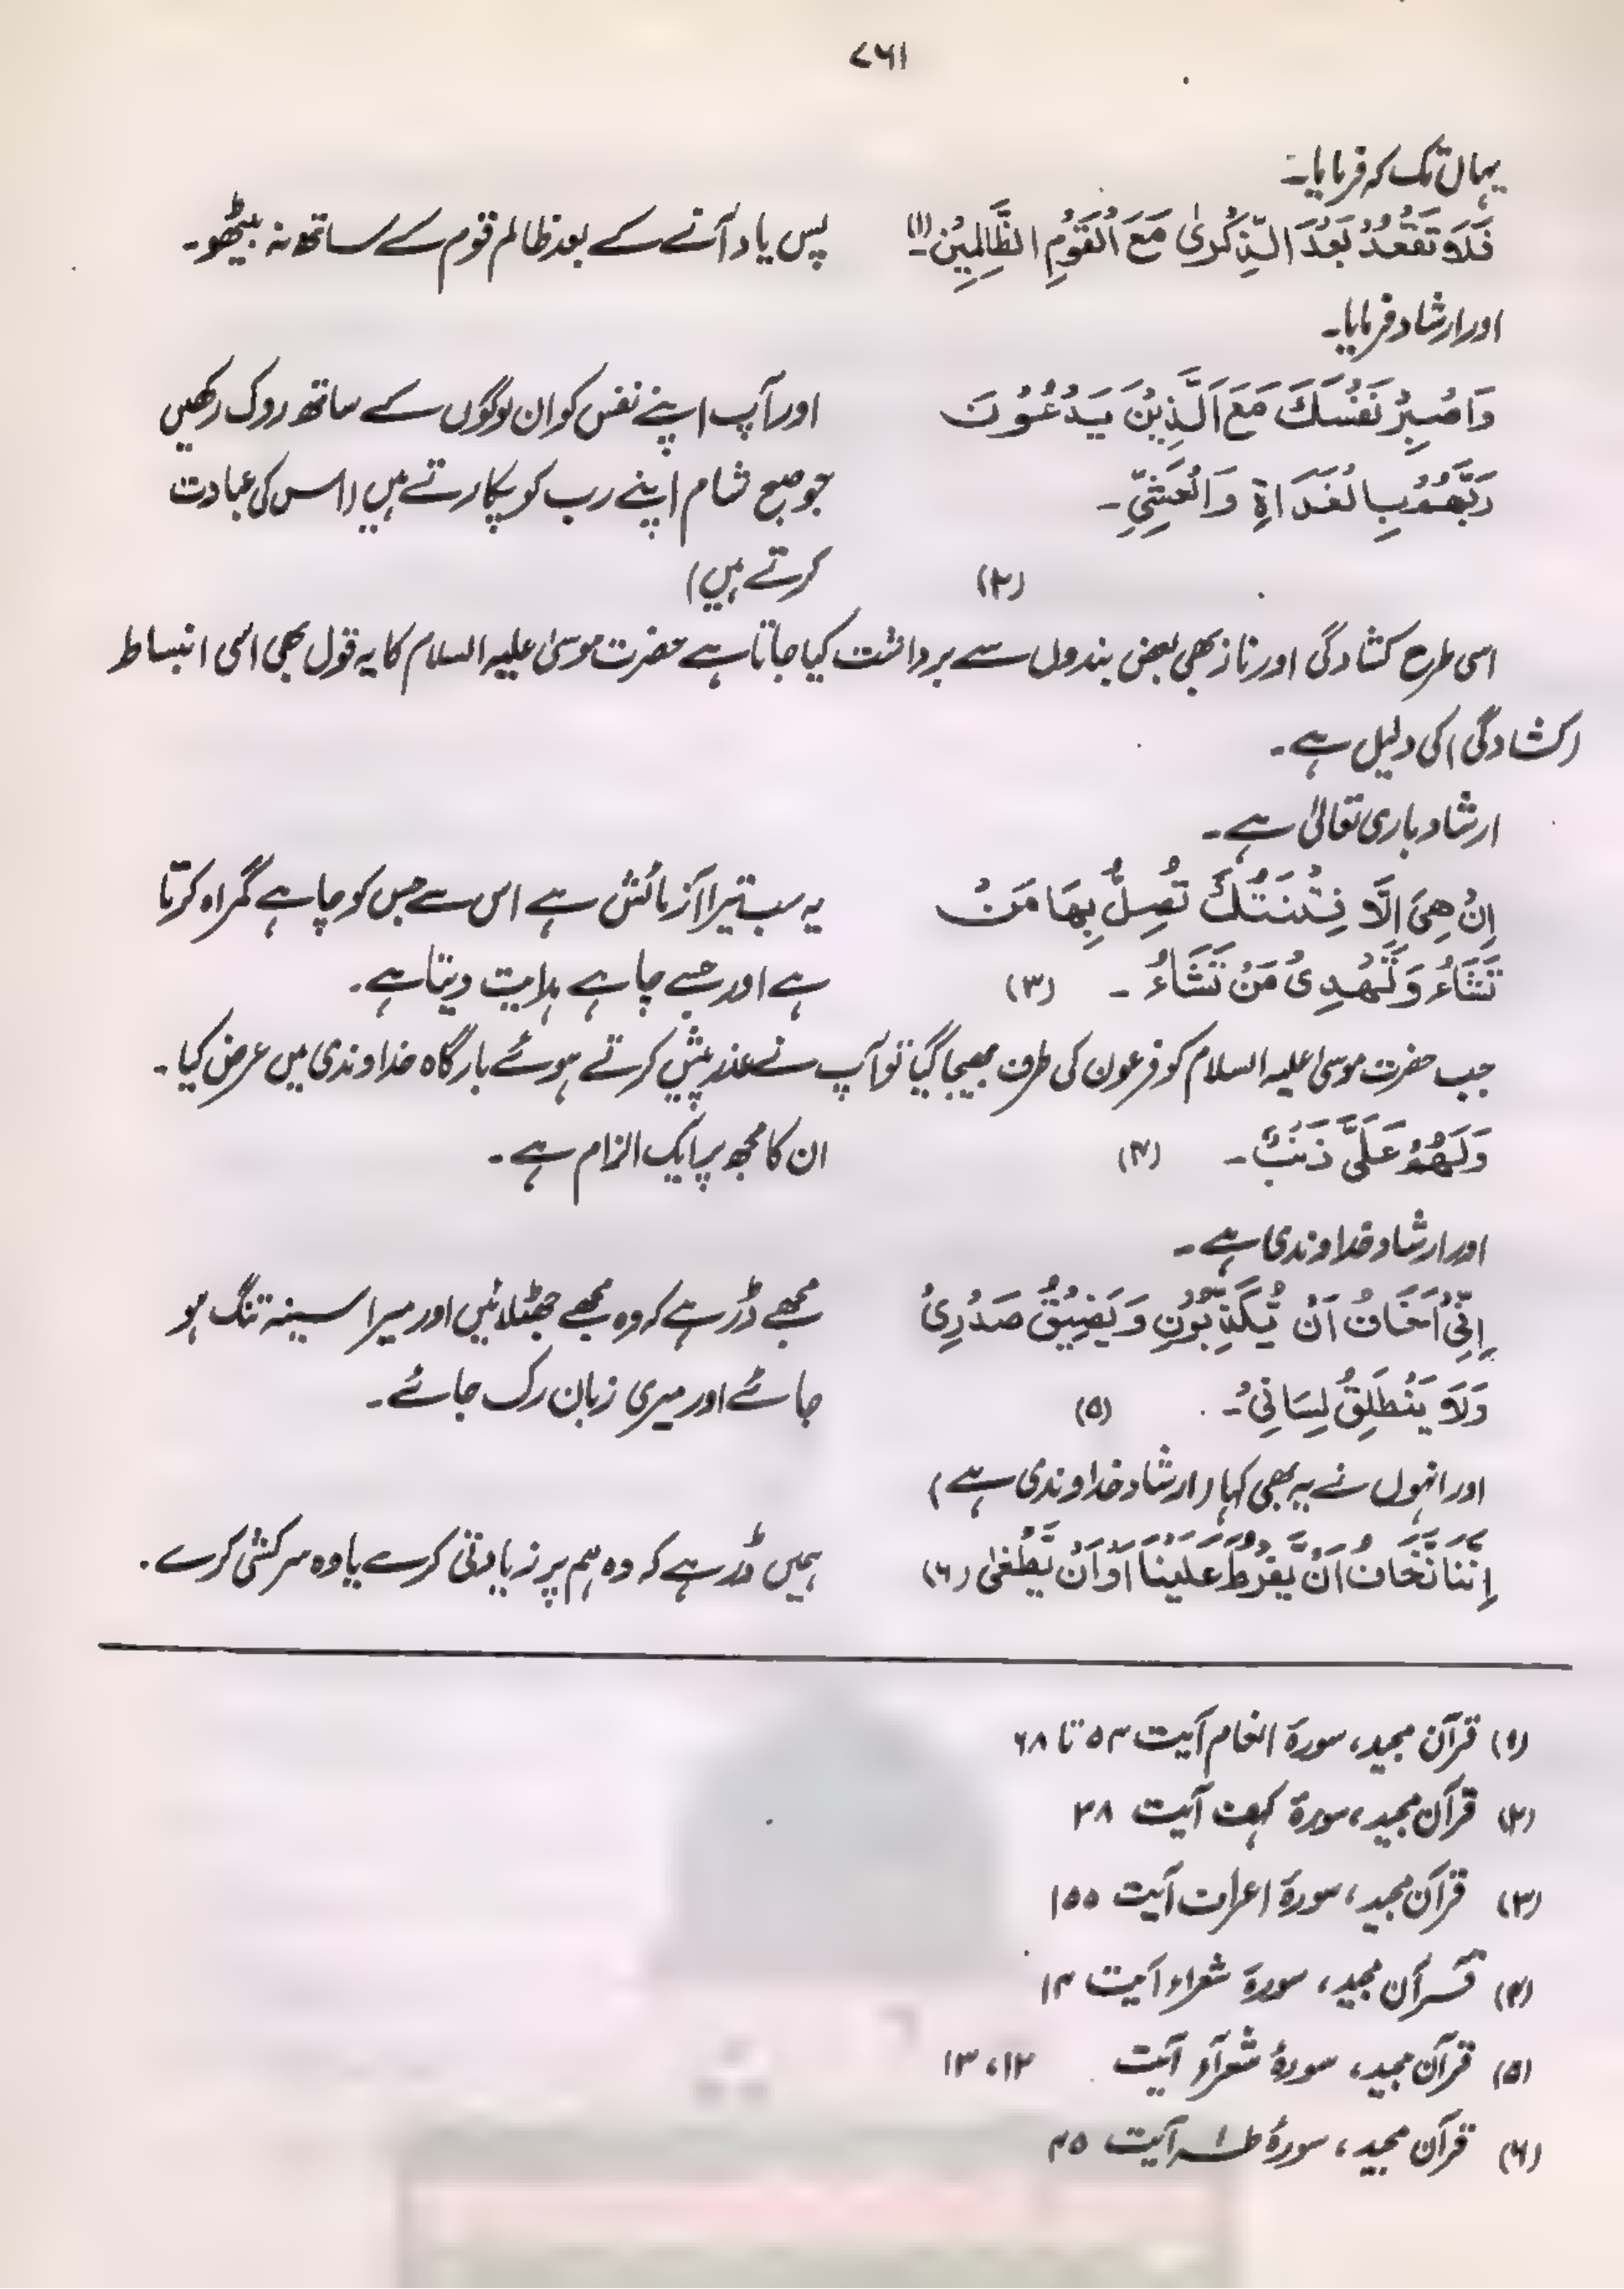 ۷۶۱
یہاں تک کہ فرمایا۔
فَلَا تَقْعُدْ بَعْدَ الذِّکْرٰی مَعَ الْقَوْمِ الظَّالِمِیْنَ۔ (۱) پس یاد آنے کے بعد ظالم قوم کے ساتھ نہ بیٹھو۔
اور ارشاد فرمایا۔
وَاصْبِرْ نَفْسَكَ مَعَ الَّذِیْنَ یَدْعُوْنَ اور آپ اپنے نفس کو ان لوگوں کے ساتھ روک رکھیں
رَبَّهُمْ بِالْغَدَاۃِ وَالْعَشِیِّ۔ جو صبح شام اپنے رب کو پکارتے ہیں (اس کی عبادت
(۲) کرتے ہیں)
اسی طرح کشادگی اور ناز بھی بعض بندوں سے برداشت کیا جاتا ہے حضرت موسیٰ علیہ السلام کا یہ قول بھی اسی انبساط
(کشادگی) کی دلیل ہے۔
ارشاد باری تعالیٰ ہے۔
اِنْ هِیَ اِلَّا فِتْنَتُكَ تُضِلُّ بِهَا مَنْ یہ سب تیرا آزمائش ہے اس سے جس کو چاہے گمراہ کرتا
تَشَاءُ وَتَهْدِیْ مَنْ تَشَاءُ ۔ (۳) ہے اور جسے چاہے ہدایت دیتا ہے۔
جب حضرت موسیٰ علیہ السلام کو فرعون کی طرف بھیجا گیا تو آپ نے عذر پیش کرتے ہوئے بارگاہ خداوندی میں عرض کیا ۔
وَلَهُمْ عَلَیَّ ذَنْبٌ۔ (۴) ان کا مجھ پر ایک الزام ہے ۔
اور ارشاد خداوندی ہے ۔
اِنِّیْ اَخَافُ اَنْ یُّكَذِّبُوْنِ وَیَضِیْقُ صَدْرِیْ مجھے ڈر ہے کہ وہ مجھے جھٹلائیں اور میرا سینہ تنگ ہو
وَلَا یَنْطَلِقُ لِسَانِیْ۔ (۵) جائے اور میری زبان رک جائے ۔
اور انہوں نے یہ بھی کہا (ارشاد خداوندی ہے)
اِنَّنَا نَخَافُ اَنْ یَّفْرُطَ عَلَیْنَا اَوْ اَنْ یَّطْغٰی (۶) ہمیں ڈر ہے کہ وہ ہم پر زیادتی کرے یا وہ سرکشی کرے۔
(۱) قرآن مجید، سورۂ انعام آیت ۵۴ تا ۶۸
(۲) قرآن مجید، سورۂ کہف آیت ۲۸
(۳) قرآن مجید، سورۂ اعراف آیت ۱۵۵
(۴) قرآن مجید، سورۂ شعراء آیت ۱۴
(۵) قرآن مجید، سورۂ شعرآء آیت ۱۲، ۱۳
(۶) قرآن مجید، سورۂ طٰہ آیت ۴۵